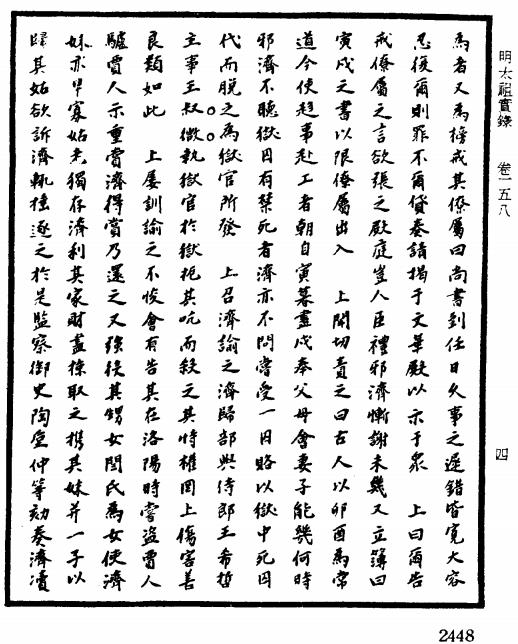 明太祖實錄　卷一五八
四
爲者又爲榜戒其僚屬曰尚書到任日久事之遲錯皆寬大容
忍後爾則罪不爾貸奏請揭于文華殿以示于衆　上曰爾告
戒僚屬之言欲張之殿庭豈人臣禮邪濟慚謝未幾又立簿曰
寅戌之書以限僚屬出入　上聞切責之曰古人以卯酉爲常
道今使趍事赴工者朝自寅暮盡戌奉父母會妻子能幾何時
邪濟不聽獄囚有禁死者濟亦不問嘗受一囚賂以獄中死囚
代而脫之爲獄官所發　上召濟諭之濟歸部與侍郎王希哲
主事王叔徵執獄官於獄扼其吭而殺之其恃權罔上傷害善
良類如此　上屢訓諭之不悛會有告其在洛陽時嘗盜賈人
驢賈人示重賞濟得賞乃還之又強役其甥女閻氏爲女使濟
妹亦早寡姑老獨存濟利其家財盡掠取之携其妹并一子以
歸其姑欲訴濟輒捶逐之於是監察御史陶垕仲等劾奏濟凟
2448